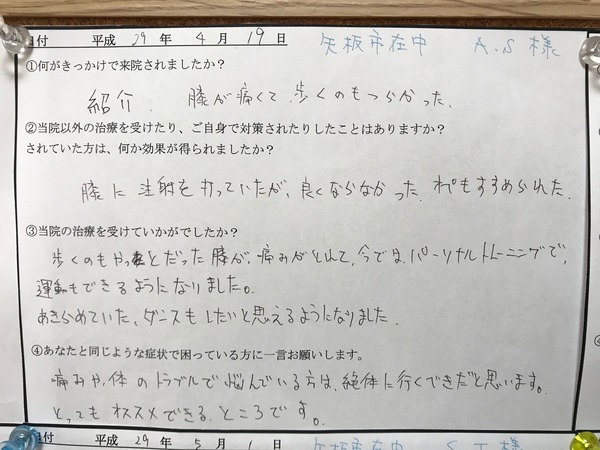 日付 平成 29 年 4 月 19 日 矢板市在中 A.S 様
①何がきっかけで来院されましたか?
紹介. 膝が痛くて、歩くのもつらかった.
②当院以外の治療を受けたり、ご自身で対策されたりしたことはありますか?
されていた方は、何か効果が得られましたか?
膝に注射を打っていたが、良くならなかった. オペもすすめられた.
③当院の治療を受けていかがでしたか?
歩くのもやっとだった膝が、痛みがとれて、今では、パーソナルトレーニングで、
運動もできるようになりました。
あきらめていた、ダンスもしたいと思えるようになりました.
④あなたと同じような症状で困っている方に一言お願いします。
痛みや、体のトラブルで悩んでいる方は、絶体に行くべきだと思います。
とってもオススメできる、ところです。
日付 平成 29 年 5 月 1 日 矢板市在中 様